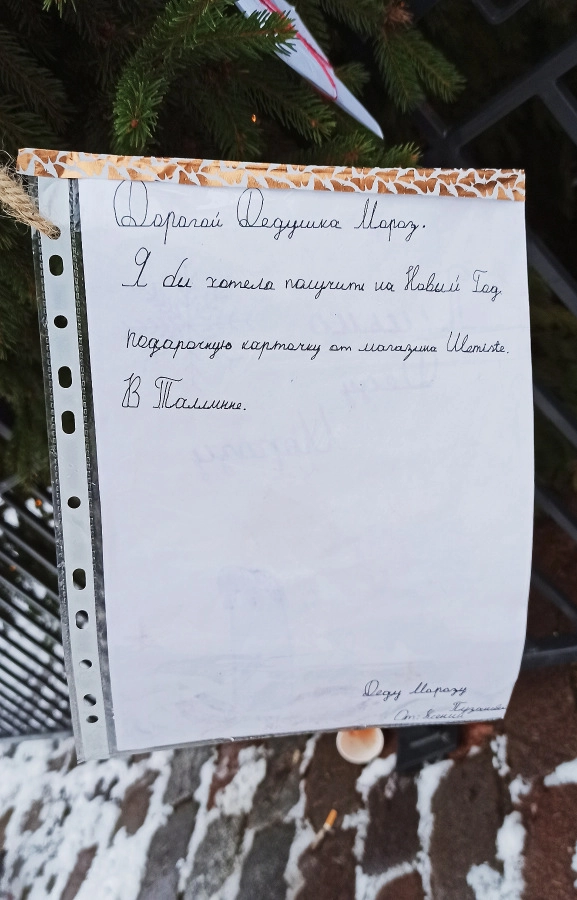 Дорогой Дедушка Мороз.
Я бы хотела получить на Новый Год
подарочную карточку от магазина Ulemiste.
В Таллинне.
Деду Морозу
От Ксении